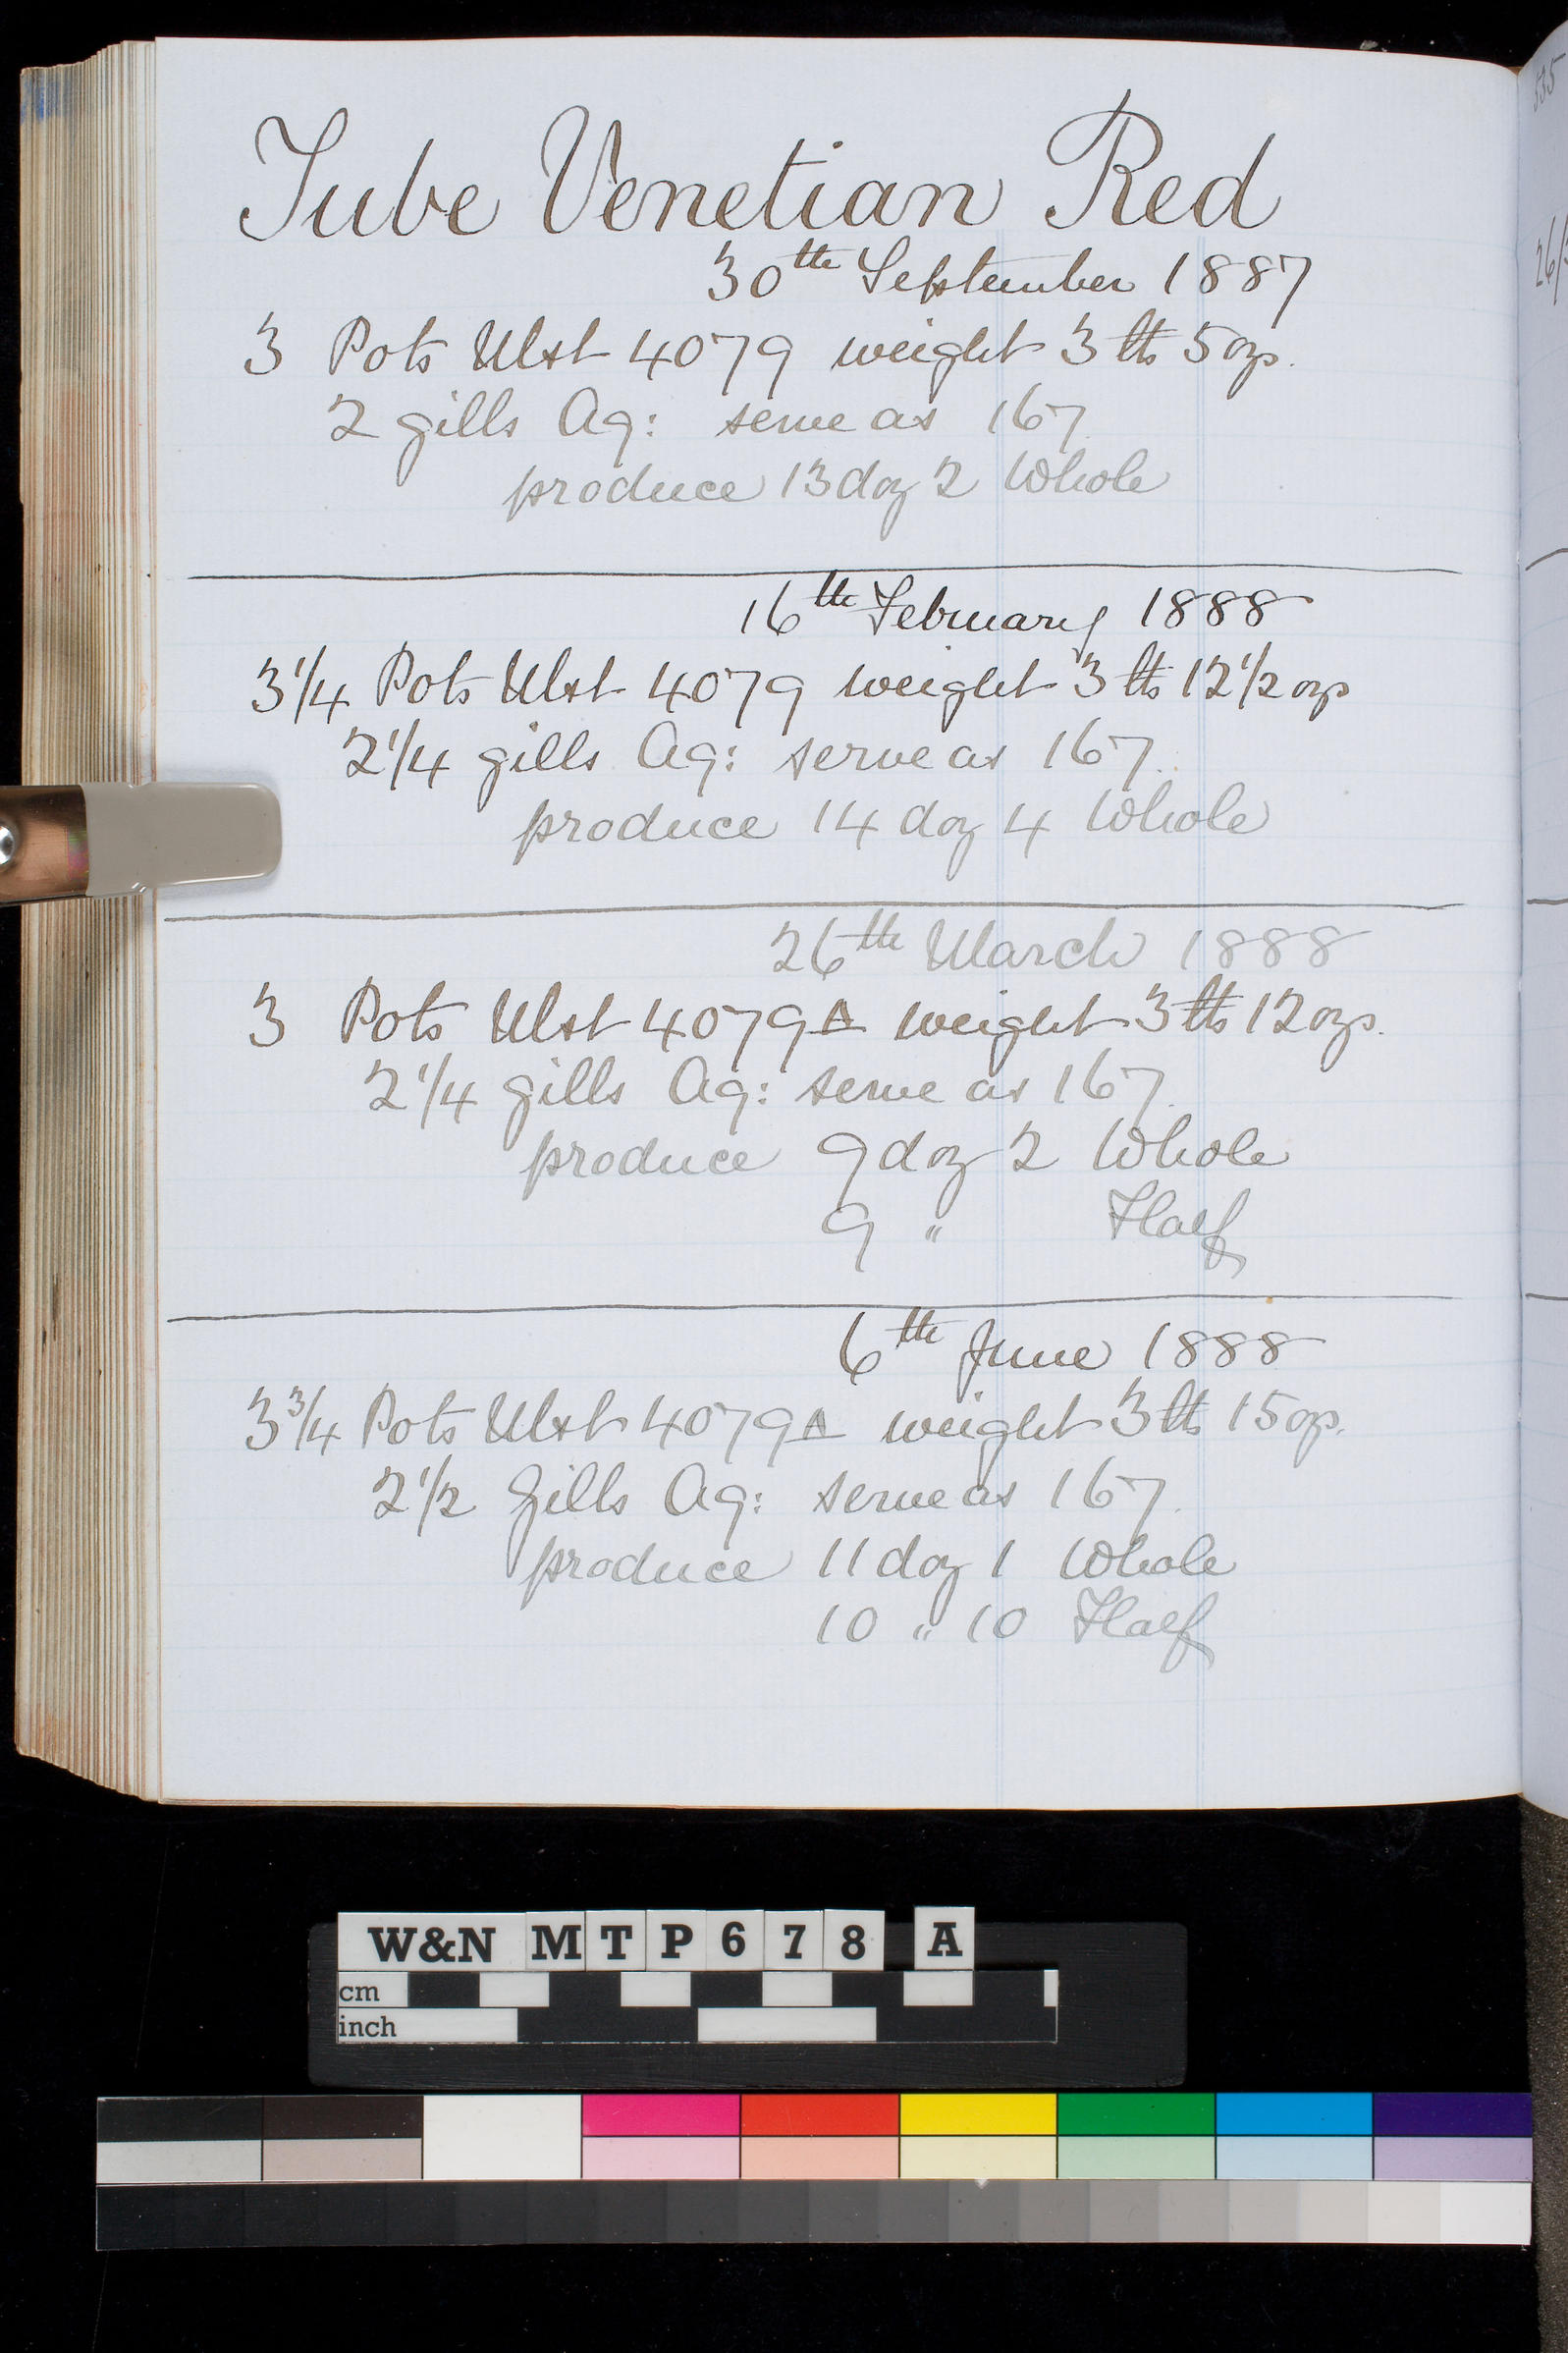 Tube Venetian Red
30th September 1887
3 Pots Ulst 4079 weight 3 lbs 5 ozs.
2 gills Aq: serve as 167.
produce 13 doz 2 Whole
16th February 1888
3 1/4 Pots Ulst 4079 weight 3 lbs 12 1/2 ozs
2 1/4 gills Aq: serve as 167.
produce 14 doz 4 Whole
26th March 1888
3 Pots Ulst 4079A weight 3 lbs 12 ozs.
2 1/4 gills Aq: serve as 167.
produce 9 doz 2 Whole
9 " Half
6th June 1888
3 3/4 Pots Ulst 4079A weight 3 lbs 15 ozs.
2 1/2 Gills Aq: serve as 167.
produce 11 doz 1 Whole
10 " 10 Half
W&N MTP678 A
cm
inch
535